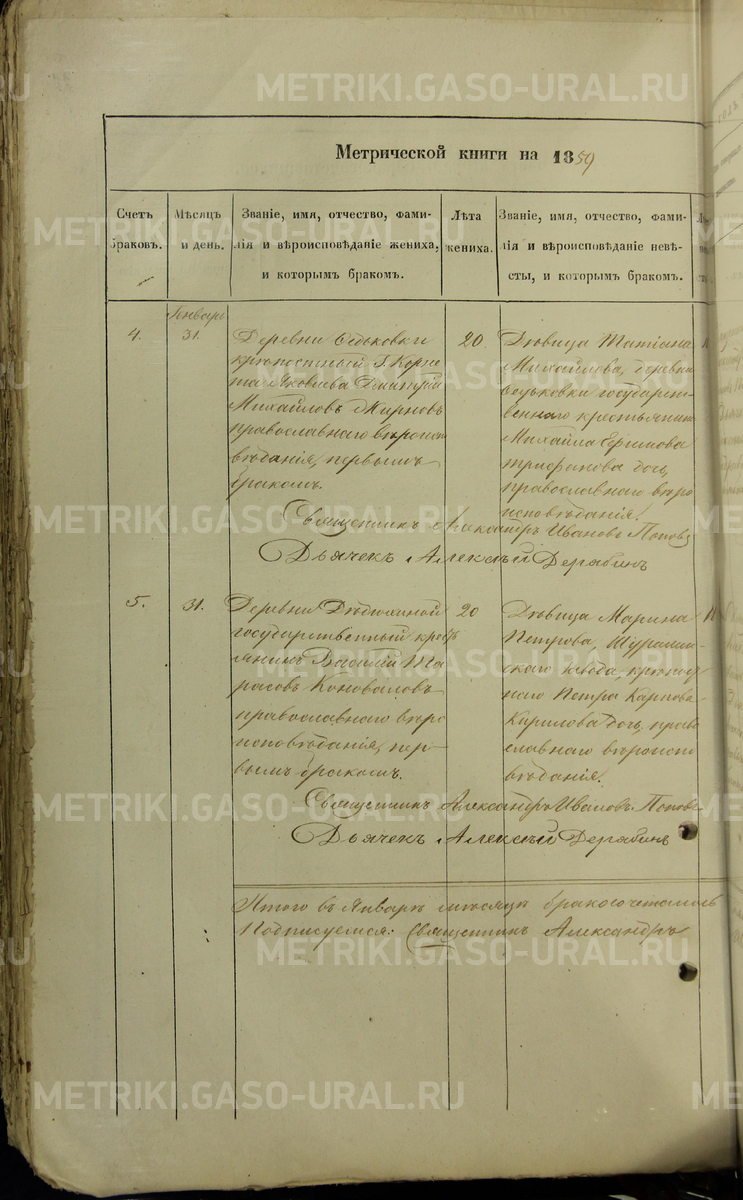 METRIKI.GASO-URAL.RU
Метрической книги на 1859
Счетъ браковъ.
Мѣсяцъ и день.
Званіе, имя, отчество, фамилія и вѣроисповѣданіе жениха, и которымъ бракомъ.
Лѣта жениха.
Званіе, имя, отчество, фамилія и вѣроисповѣданіе невѣсты, и которымъ бракомъ.
Январь
4.
31.
Деревни
крѣпостный Г. Корне
та Яковлева Дмитрій
Михайловъ Жирновъ
православнаго вѣроиспо
вѣданія, первымъ
бракомъ.
20.
Дѣвица Татіана
Михайлова, деревни
государст
веннаго крестьянина
Михаила Ефимова
Трифанова дочь,
православнаго вѣро
исповѣданія.
Священникъ Александръ Ивановъ Поповъ
Дьячекъ Алексѣй Дерябинъ
5.
31.
Деревни
государственный крест
янинъ Василій Та
расовъ Коноваловъ
православнаго вѣро
исповѣданія, пер
вымъ бракомъ.
20
Дѣвица Марина
Петрова, Шуралин
скаго завода, крѣпост
наго Петра Карпова
Кирилова дочь, право
славнаго вѣроиспо
вѣданія.
Священникъ Александръ Ивановъ Поповъ
Дьячекъ Алексѣй Дерябинъ
Итого въ Январѣ мѣсяцѣ
Подписуемся: Священникъ Александръ